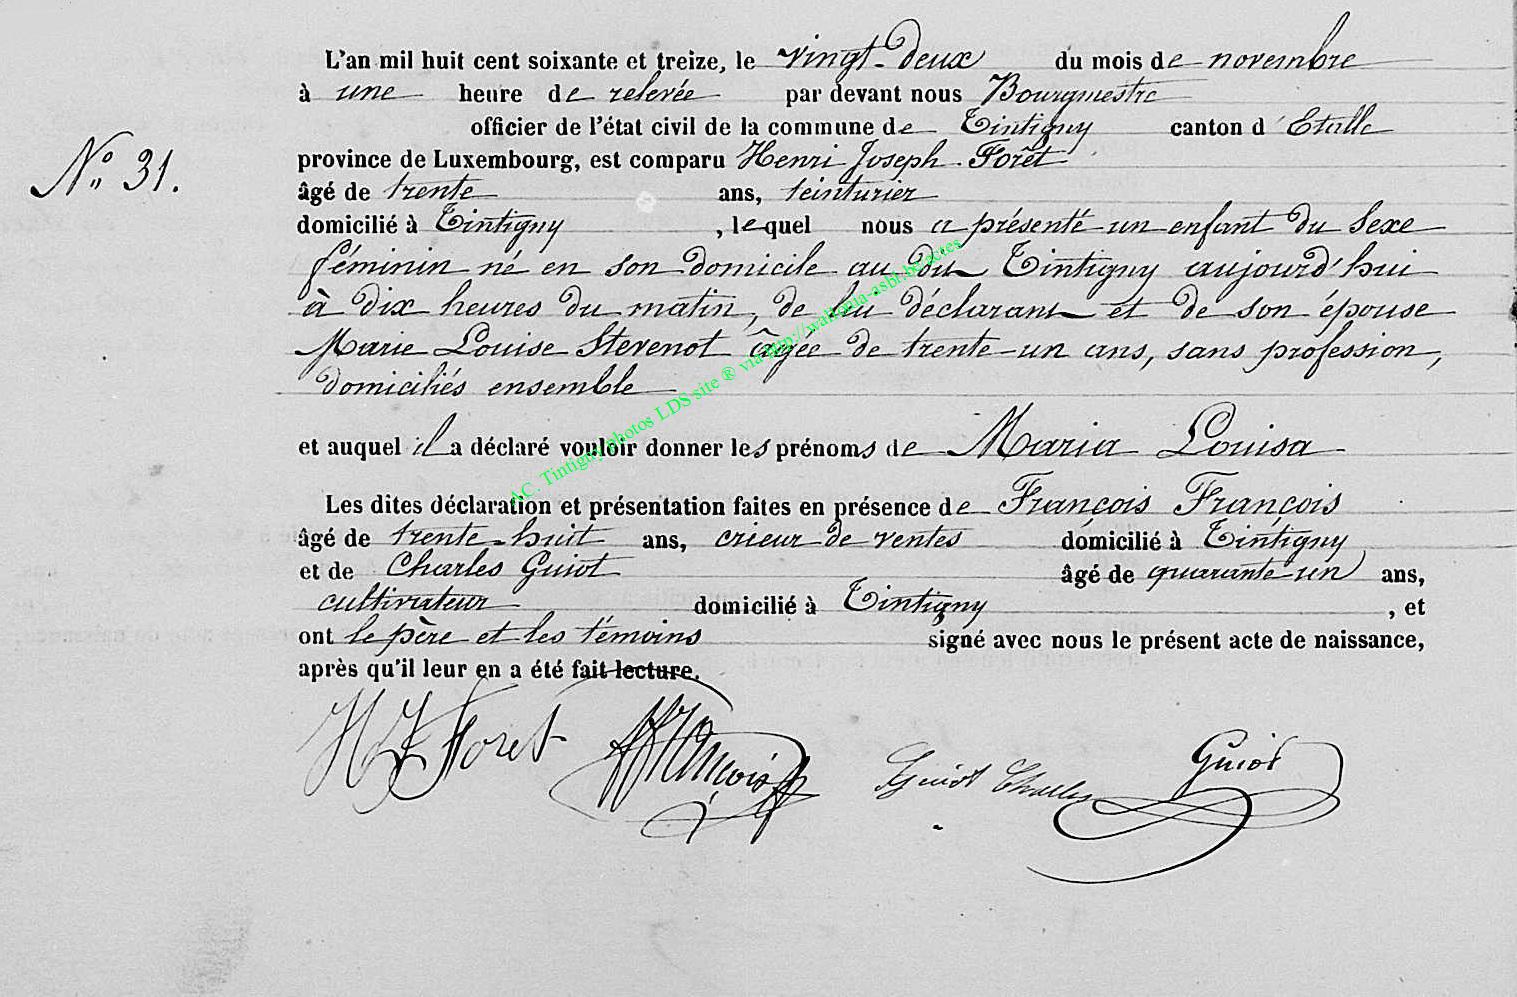 L'an mil huit cent soixante et treize, le vingt-deux du mois de novembre
à une heure de relevée par devant nous Bourgmestre
officier de l'état civil de la commune de Tintigny canton d'Etalle
N° 31.
province de Luxembourg, est comparu Henri Joseph Forêt
âgé de trente ans, teinturier
domicilié à Tintigny, lequel nous a présenté un enfant du sexe
féminin né en son domicile au dit Tintigny aujourd'hui
à dix heures du matin, de lui déclarant et de son épouse
Marie Louise Stevenot âgée de trente-un ans, sans profession,
domiciliés ensemble
AC. Tintigny photos LDS site ® via http://wallonia-asbl.be/actes
et auquel il a déclaré vouloir donner les prénoms de Maria Louisa
Les dites déclaration et présentation faites en présence de François François
âgé de trente-huit ans, crieur de ventes domicilié à Tintigny
et de Charles Guiot âgé de quarante-un ans,
cultivateur domicilié à Tintigny, et
ont le père et les témoins signé avec nous le présent acte de naissance,
après qu'il leur en a été fait lecture.
HJ Foret François Guiot Charles Guiot